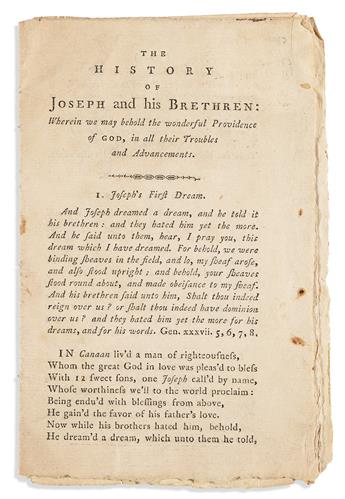 THE
HISTORY
OF
JOSEPH and his BRETHREN:
Wherein we may behold the wonderful Providence
of GOD, in all their Troubles
and Advancements.
1. Joseph's Firſt Dream.
And Joseph dreamed a dream, and he told it
his brethren: and they hated him yet the more.
And he ſaid unto them, hear, I pray you, this
dream which I have dreamed. For behold, we were
binding ſheaves in the field, and lo, my ſheaf aroſe,
and alſo ſtood upright; and behold, your ſheaves
ſtood round about, and made obeiſance to my ſheaf.
And his brethren ſaid unto him, Shalt thou indeed
reign over us? or ſhalt thou indeed have dominion
over us? and they hated him yet the more for his
dreams, and for his words. Gen. xxxvii. 5, 6, 7, 8.
IN Canaan liv'd a man of righteouſneſs,
Whom the great God in love was pleas'd to bleſs
With 12 ſweet sons, one Joſeph call'd by name,
Whoſe worthineſs we'll to the world proclaim:
Being endu'd with bleſſings from above,
He gain'd the favor of his father's love.
Now while his brothers hated him, behold,
He dream'd a dream, which unto them he told,